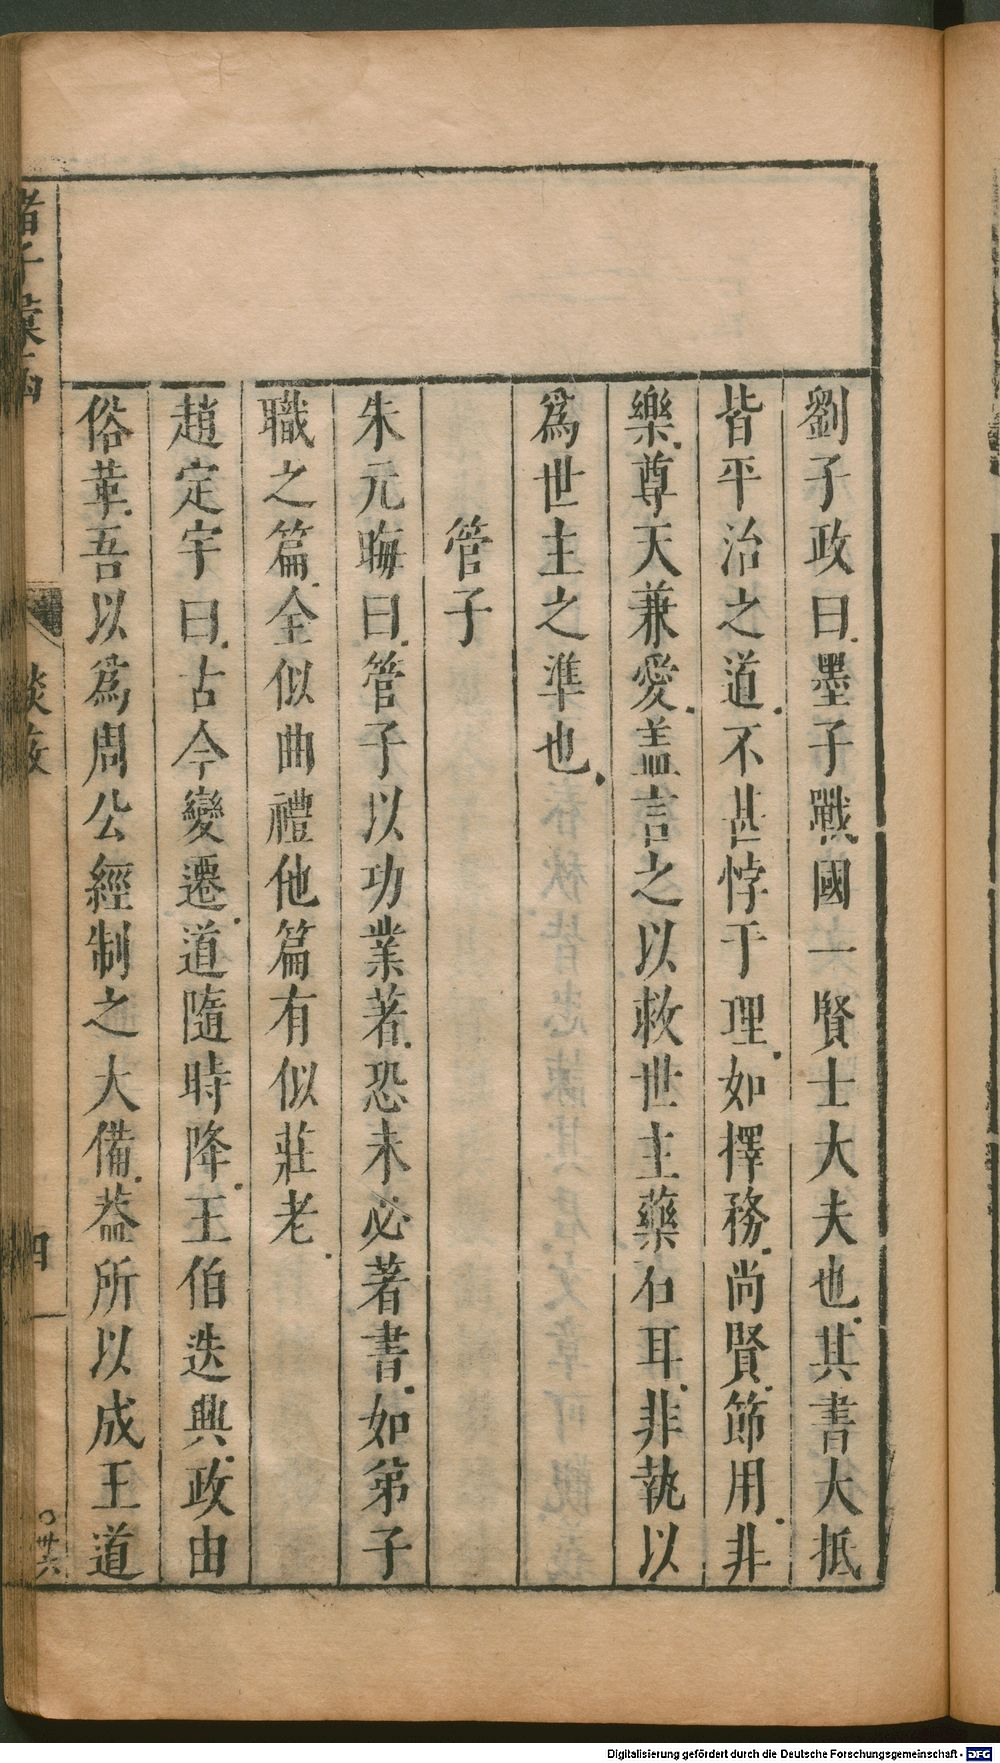 劉子政曰墨子戰國一賢士大夫也其書大抵
皆平治之道不甚悖于理如擇務尚賢節用非
樂尊天兼愛盖言之以救世主藥石耳非執以
爲世主之準也
管子
朱元晦曰管子以功業著恐未必著書如第子
職之篇全似曲禮他篇有似莊老
趙定宇曰古今變遷道隨時降王伯迭興政由
俗革吾以爲周公經制之大備葢所以成王道
諸子彙函
談苑
四
Digitalisierung gefördert durch die Deutsche Forschungsgemeinschaft - DFG